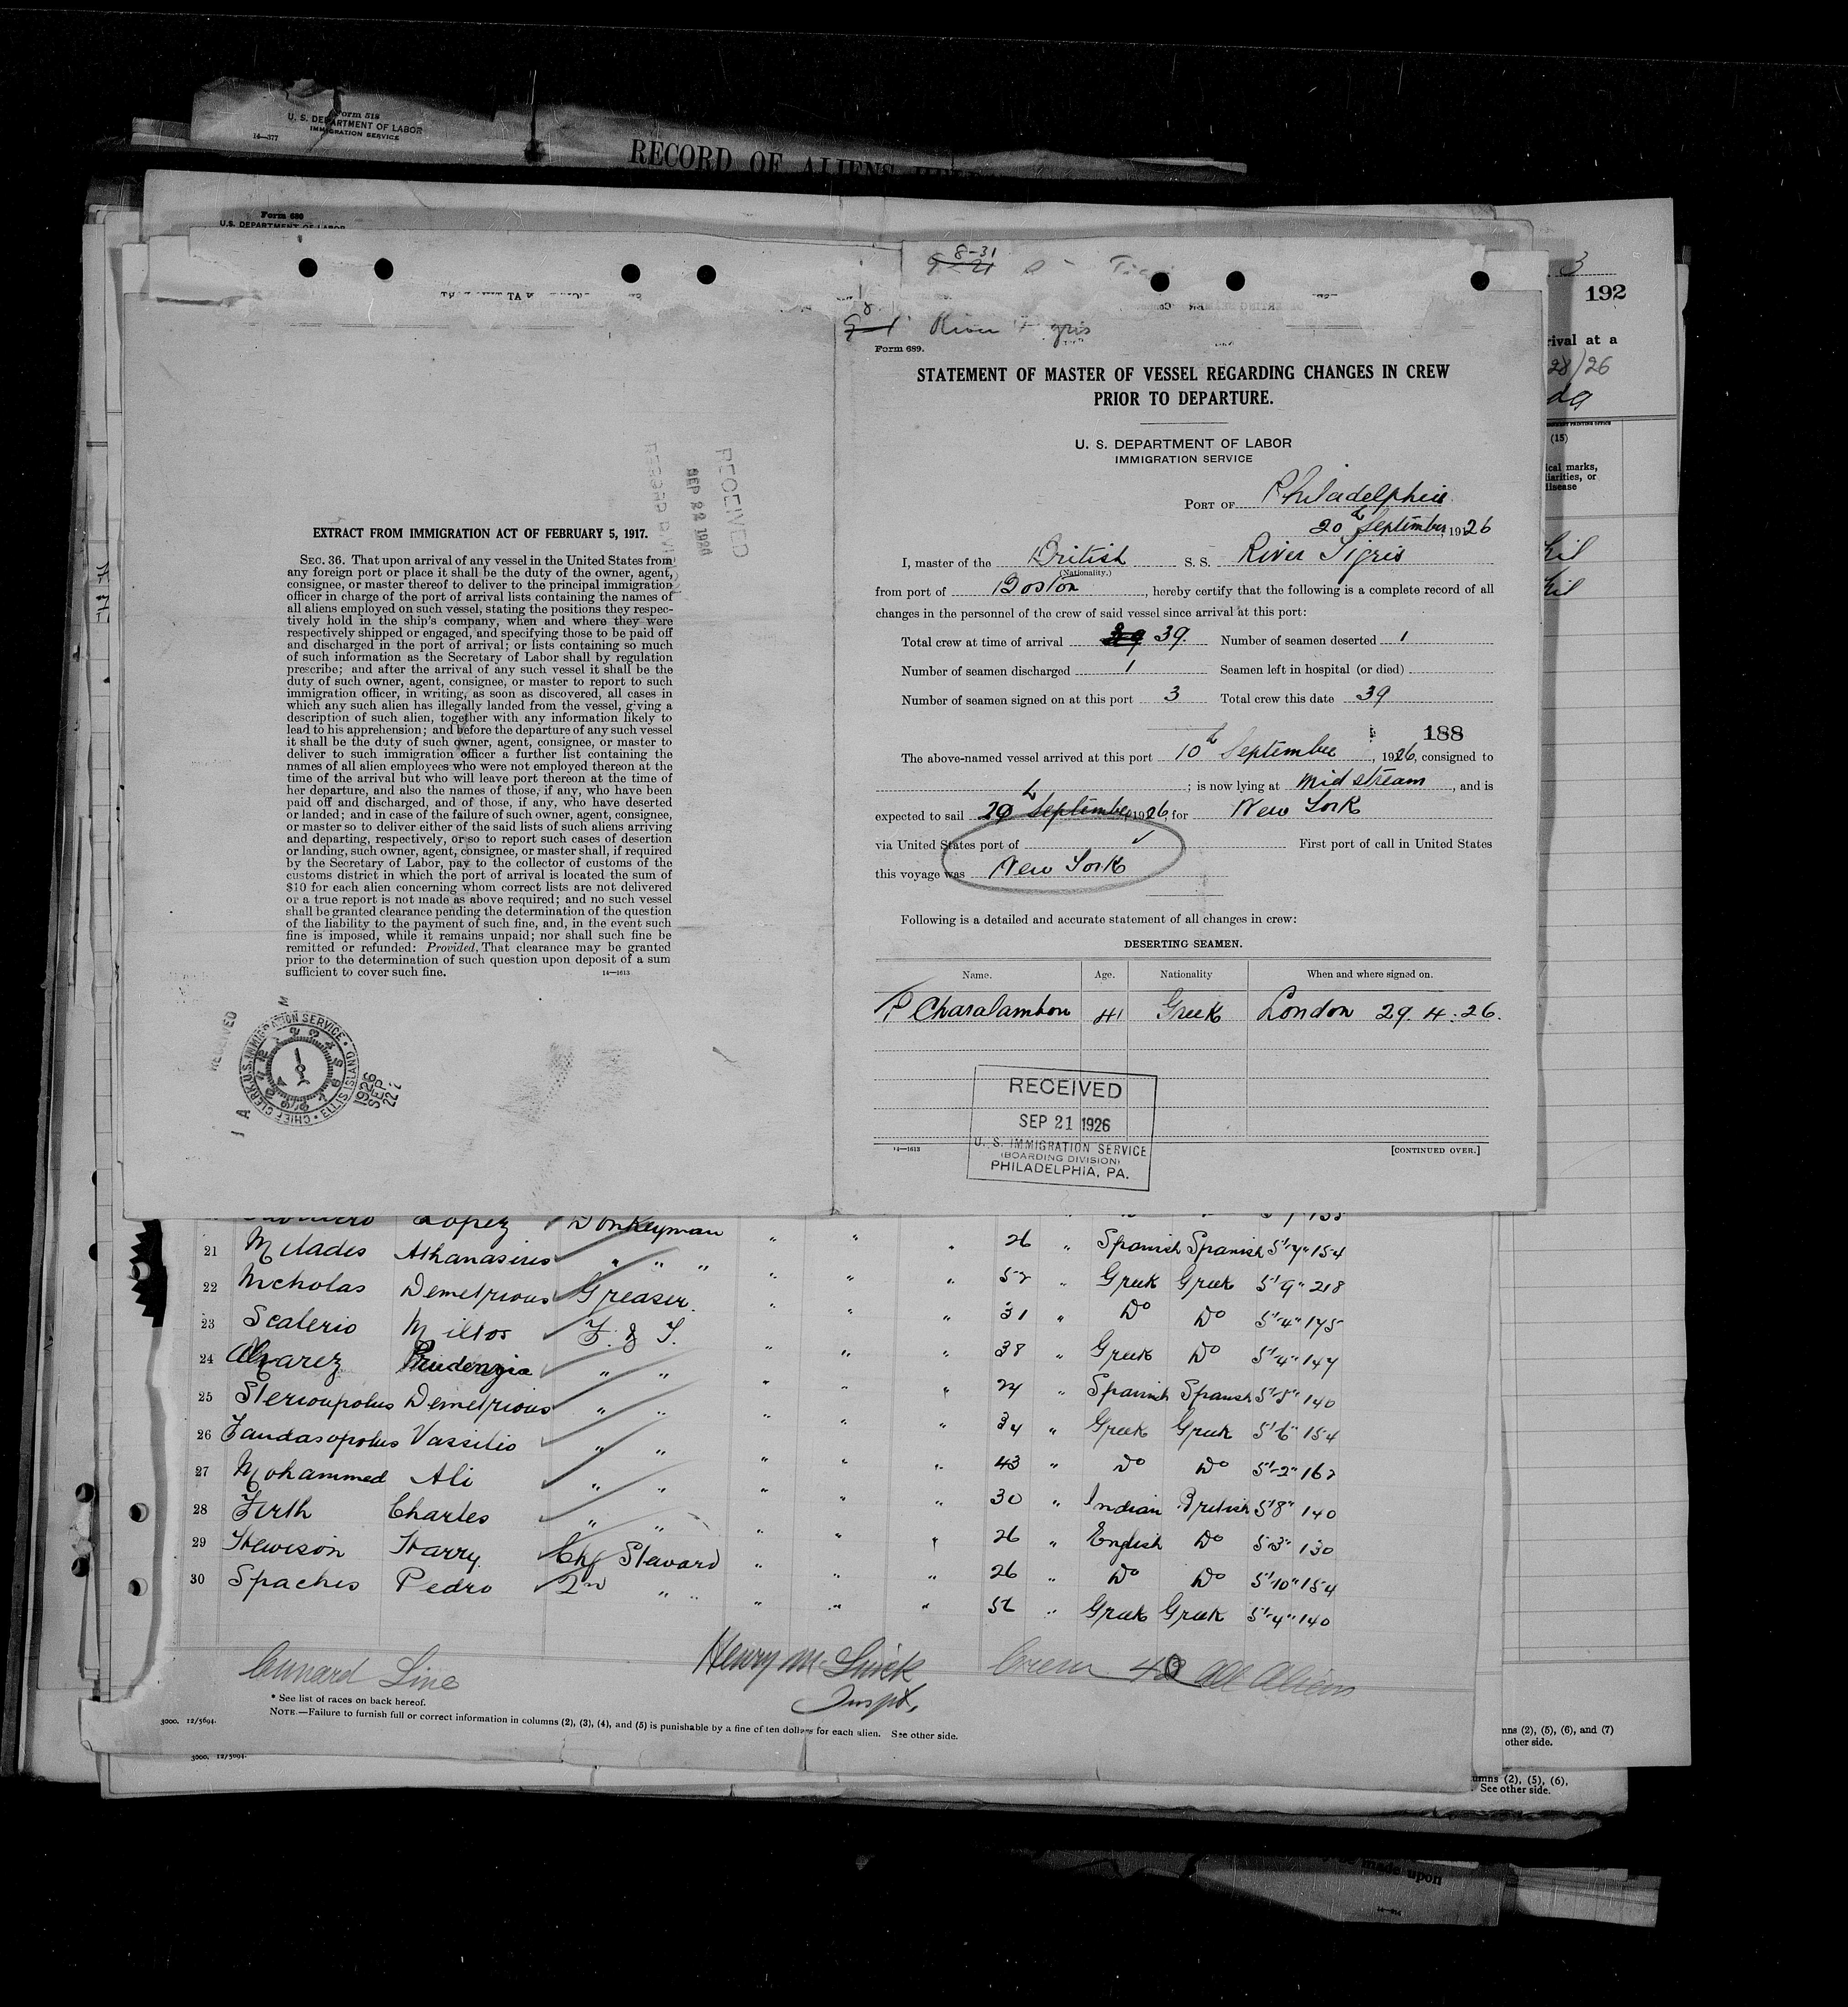 Form 518
U. S. DEPARTMENT OF LABOR
IMMIGRATION SERVICE
14—377
RECORD OF ALIENS
Form 680
U.S. DEPARTMENT OF LABOR
8-31
9-21
River Tigris
Form 689.
STATEMENT OF MASTER OF VESSEL REGARDING CHANGES IN CREW
PRIOR TO DEPARTURE.
U. S. DEPARTMENT OF LABOR
IMMIGRATION SERVICE
PORT OF Philadelphia
20th September, 1926
I, master of the British S. S. River Tigris
(Nationality.)
from port of Boston, hereby certify that the following is a complete record of all
changes in the personnel of the crew of said vessel since arrival at this port:
Total crew at time of arrival 39 39. Number of seamen deserted 1
Number of seamen discharged 1 Seamen left in hospital (or died)
Number of seamen signed on at this port 3 Total crew this date 39
188
The above-named vessel arrived at this port 10th September, 1926, consigned to
; is now lying at Mid stream, and is
expected to sail 20th September 1926, for New York
via United States port of First port of call in United States
this voyage was New York
Following is a detailed and accurate statement of all changes in crew:
DESERTING SEAMEN.
Name. Age. Nationality When and where signed on.
P Charalambou 41 Greek London 29.4.26.
RECEIVED
SEP 21 1926
U. S. IMMIGRATION SERVICE
(BOARDING DIVISION)
PHILADELPHIA, PA.
14—1613 [CONTINUED OVER.]
RECEIVED
SEP 22 1926
RECORD DIVISION
EXTRACT FROM IMMIGRATION ACT OF FEBRUARY 5, 1917.
SEC. 36. That upon arrival of any vessel in the United States from
any foreign port or place it shall be the duty of the owner, agent,
consignee, or master thereof to deliver to the principal immigration
officer in charge of the port of arrival lists containing the names of
all aliens employed on such vessel, stating the positions they respec-
tively hold in the ship's company, when and where they were
respectively shipped or engaged, and specifying those to be paid off
and discharged in the port of arrival; or lists containing so much
of such information as the Secretary of Labor shall by regulation
prescribe; and after the arrival of any such vessel it shall be the
duty of such owner, agent, consignee, or master to report to such
immigration officer, in writing, as soon as discovered, all cases in
which any such alien has illegally landed from the vessel, giving a
description of such alien, together with any information likely to
lead to his apprehension; and before the departure of any such vessel
it shall be the duty of such owner, agent, consignee, or master to
deliver to such immigration officer a further list containing the
names of all alien employees who were not employed thereon at the
time of the arrival but who will leave port thereon at the time of
her departure, and also the names of those, if any, who have been
paid off and discharged, and of those, if any, who have deserted
or landed; and in case of the failure of such owner, agent, consignee,
or master so to deliver either of the said lists of such aliens arriving
and departing, respectively, or so to report such cases of desertion
or landing, such owner, agent, consignee, or master shall, if required
by the Secretary of Labor, pay to the collector of customs of the
customs district in which the port of arrival is located the sum of
$10 for each alien concerning whom correct lists are not delivered
or a true report is not made as above required; and no such vessel
shall be granted clearance pending the determination of the question
of the liability to the payment of such fine, and, in the event such
fine is imposed, while it remains unpaid; nor shall such fine be
remitted or refunded: Provided, That clearance may be granted
prior to the determination of such question upon deposit of a sum
sufficient to cover such fine.
14—1613
RECEIVED
CHIEF CLERK, U.S. IMMIGRATION SERVICE • ELLIS ISLAND
1926
SEP
22
3
192
rival at a
28/26
(15)
ical marks,
liarities, or
disease
Lopez Donkeyman
21 Milades Athanasius " " " " " " 26 " Spanish Spanish 5'-7" 154
22 Nicholas Demetrious Greaser. " " " 52 " Greek Greek 5'9" 218
23 Scalerio Miltos F. & T. " " " 31 " Do Do 5'-4" 175
24 Alvarez Prudenzia " " " " " 38 " Greek Do 5'-4" 147
25 Sterioupolus Demetrious " " " " " 24 " Spanish Spanish 5'-5" 140
26 Tandasopolus Vassilio " " " " " 34 " Greek Greek 5'-6" 154
27 Mohammed Ali " " " " " 43 " Do Do 5'-2" 162
28 Firth Charles " " " " " 30 " Indian British 5'8" 140
29 Hewison Harry. Chf Steward " " " 26 " English Do 5'-3" 130
30 Spachis Pedro 2nd " " " " 26 " Do Do 5'-10" 154
" " " 52 " Greek Greek 5'-4" 140
Cunard Line Henry M. Crew 40 All Aliens
Inspt.
* See list of races on back hereof.
NOTE.—Failure to furnish full or correct information in columns (2), (3), (4), and (5) is punishable by a fine of ten dollars for each alien. See other side.
3000. 12/5694.
3000. 12/5694.
mns (2), (5), (6), and (7)
other side.
umns (2), (5), (6),
See other side.
made upon